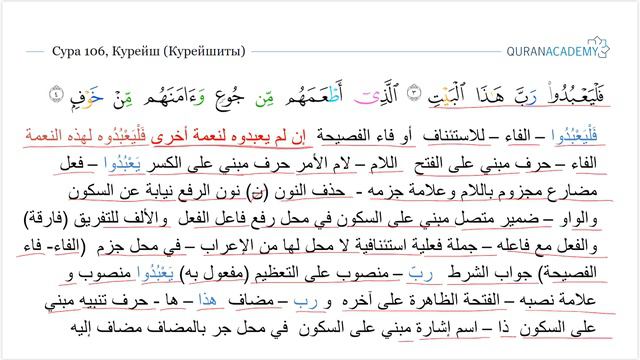 Сура 106, Курейш (Курейшиты)
QURANACADEMY
فَلْيَعْبُدُوا۟ رَبَّ هَـٰذَا ٱلْبَيْتِ ٣ ٱلَّذِىٓ أَطْعَمَهُم مِّن جُوعٍ وَءَامَنَهُم مِّنْ خَوْفٍ ٤
فَلْيَعْبُدُوا – الفاء – للاستئناف أو فاء الفصيحة إن لم يعبدوه لنعمة أخرى فَلْيَعْبُدُوه لهذه النعمة
الفاء – حرف مبني على الفتح اللام – لام الأمر حرف مبني على الكسر يَعْبُدُوا – فعل
مضارع مجزوم باللام وعلامة جزمه - حذف النون (ن) نون الرفع نيابة عن السكون
والواو – ضمير متصل مبني على السكون في محل رفع فاعل الفعل والألف للتفريق (فارقة)
والفعل مع فاعله – جملة فعلية استئنافية لا محل لها من الإعراب – في محل جزم (الفاء- فاء
الفصيحة) جواب الشرط ربّ – منصوب على التعظيم (مفعول به) يَعْبُدُوا منصوب و
علامة نصبه – الفتحة الظاهرة على آخره و رب – مضاف هذا – ها - حرف تنبيه مبني
على السكون ذا – اسم إشارة مبني على السكون في محل جر بالمضاف مضاف إليه